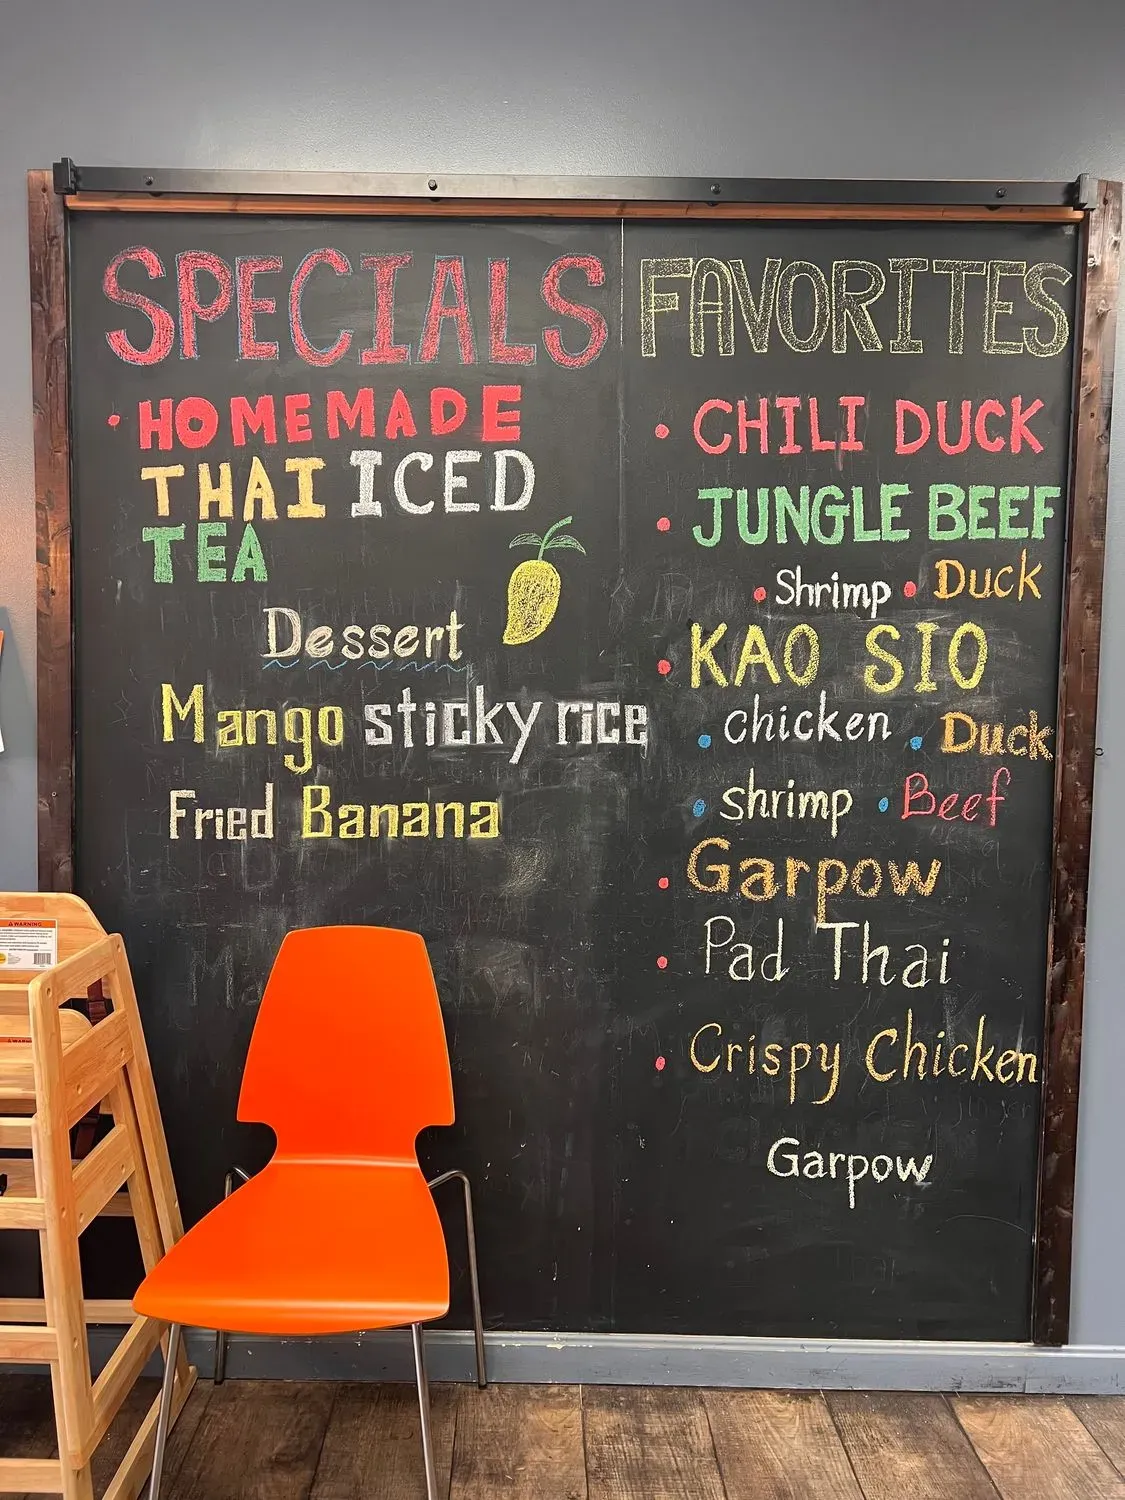 SPECIALS
• HOMEMADE
THAI ICED
TEA
Dessert
Mango sticky rice
Fried Banana
FAVORITES
• CHILI DUCK
• JUNGLE BEEF
• Shrimp • Duck
• KAO SIO
• chicken • Duck
• shrimp • Beef
• Garpow
• Pad Thai
• Crispy Chicken
Garpow
WARNING